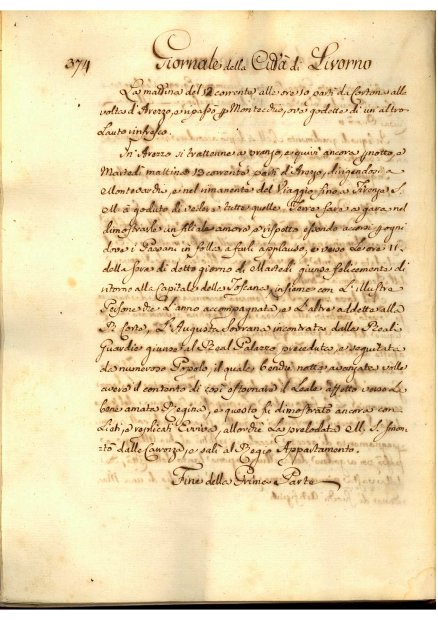 374 Giornale della Città di Livorno
La mattina del 12 corrente alle ore 10 partì da Cortona alla
volta d'Arezzo, e passò p Montecchio, ove godette di un altro
Lauto infresco.
In Arezzo si trattenne a pranzo, e quivi ancora pnottò, e
Martedì mattina 13 corrente partì d'Arezzo, dirigendosi a
Montevarchi, e nel rimanente del Viaggio fino a Firenze S.
M. à goduto di veder a tutte quelle Terre fare a gara nel
dimostrarle in filiale amore, e rispetto essendo accorsi p ogni
dove i Paesani in folla a farli applauso, e verso le ore 11.
della sera di detto giorno di Martedì giunse felicemente di
ritorno alla Capitale della Toscana, insieme con L'illustri
Persone che L'anno accompagnata, e L'altre addette alla
R. Corte, L'Augusta Sovrana incontrata dalle Reali
Guardie giunse al Real Palazzo preceduta, e seguitata
da numeroso Popolo, il quale benchè notte avanzata volle
avere il contento di così esternare il Leale affetto verso La
bene amata Regina, e questo fù dimostrato ancora con
Lieti, e replicati Evviva, allorchè La prelodata M. S. smon-
tò dalla Carrozza, e salì al Regio Appartamento.
Fine della Prima Parte